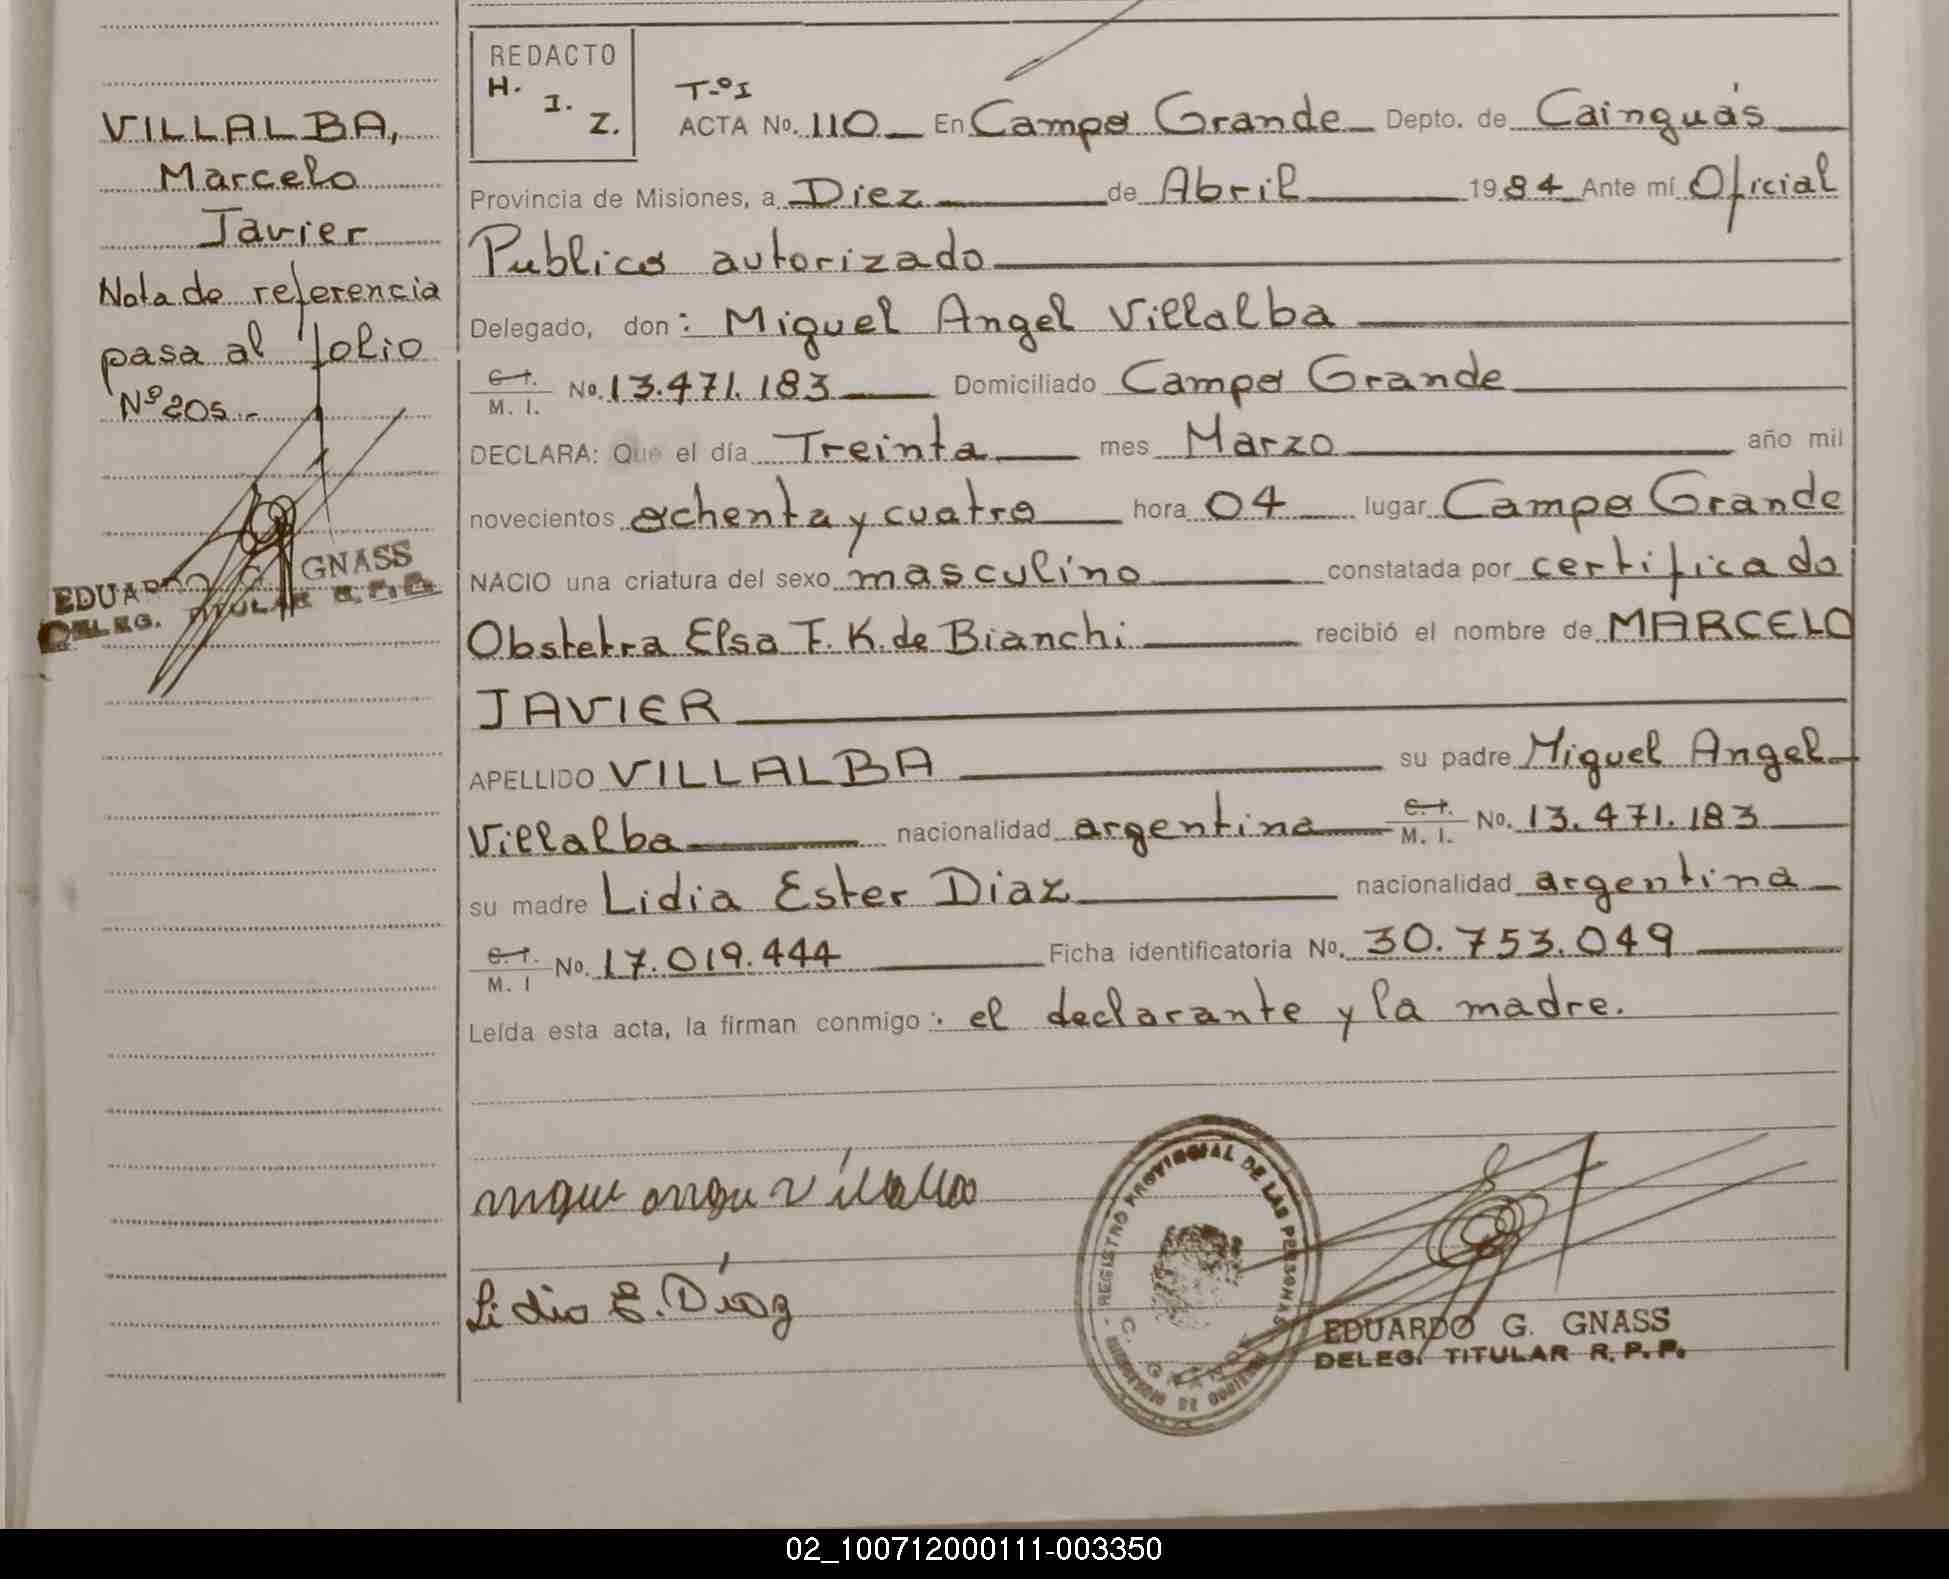 VILLALBA,
Marcelo
Javier
Nota de referencia
pasa al folio
Nº 205.-
EDUARDO G. GNASS
DELEG. TITULAR R.P.P.
REDACTO
H. I. Z.
T-º I
ACTA No. 110 En Campo Grande Depto. de Cainguás
Provincia de Misiones, a Diez de Abril 1984 Ante mí Oficial
Publico autorizado
Delegado, don: Miguel Angel Villalba
C. I. M. I. No. 13.471.183 Domiciliado Campo Grande
DECLARA: Que el día Treinta mes Marzo año mil
novecientos ochenta y cuatro hora 04 lugar Campo Grande
NACIO una criatura del sexo masculino constatada por certificado
Obstetra Elsa F. K. de Bianchi recibió el nombre de MARCELO
JAVIER
APELLIDO VILLALBA su padre Miguel Angel
Villalba nacionalidad argentina C. I. M. I. No. 13.471.183
su madre Lidia Ester Diaz nacionalidad argentina
C. I. M. I No. 17.019.444 Ficha identificatoria No. 30.753.049
Leída esta acta, la firman conmigo: el declarante y la madre.
Lidia E. Díaz
REGISTRO PROVINCIAL DE LAS PERSONAS
C. GRANDE
EDUARDO G. GNASS
DELEG. TITULAR R.P.P.
02_100712000111-003350